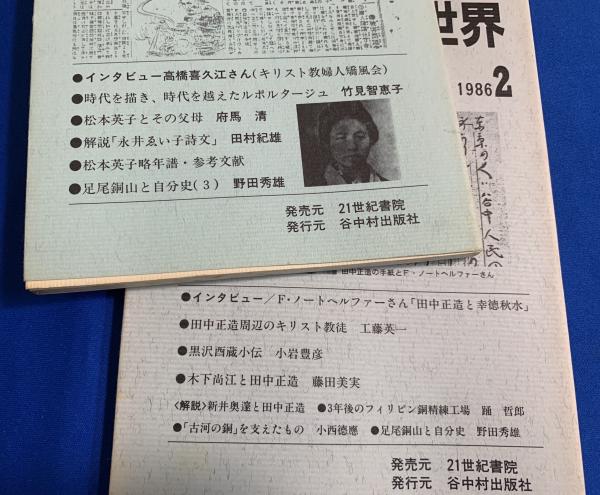 ●インタビュー高橋喜久江さん(キリスト教婦人矯風会)
●時代を描き、時代を越えたルポルタージュ 竹見智恵子
●松本英子とその父母 府馬 清
●解説「永井ゑい子詩文」 田村紀雄
●松本英子略年譜・参考文献
●足尾銅山と自分史(3) 野田秀雄
発売元 21世紀書院
発行元 谷中村出版社
世界
1986 2
田中正造の手紙とF・ノートヘルファーさん
●インタビュー/F・ノートヘルファーさん「田中正造と幸徳秋水」
●田中正造周辺のキリスト教徒 工藤英一
●黒沢酉蔵小伝 小岩豊彦
●木下尚江と田中正造 藤田美実
〈解説〉新井奥邃と田中正造 ●3年後のフィリピン銅精練工場 踊 哲郎
●「古河の銅」を支えたもの 小西徳應 ●足尾銅山と自分史 野田秀雄
発売元 21世紀書院
発行元 谷中村出版社